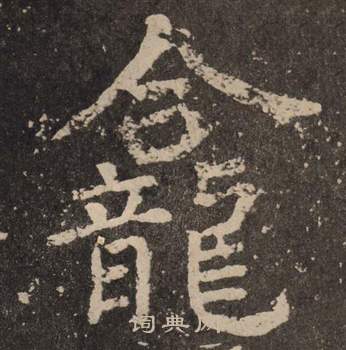 龕
词典网